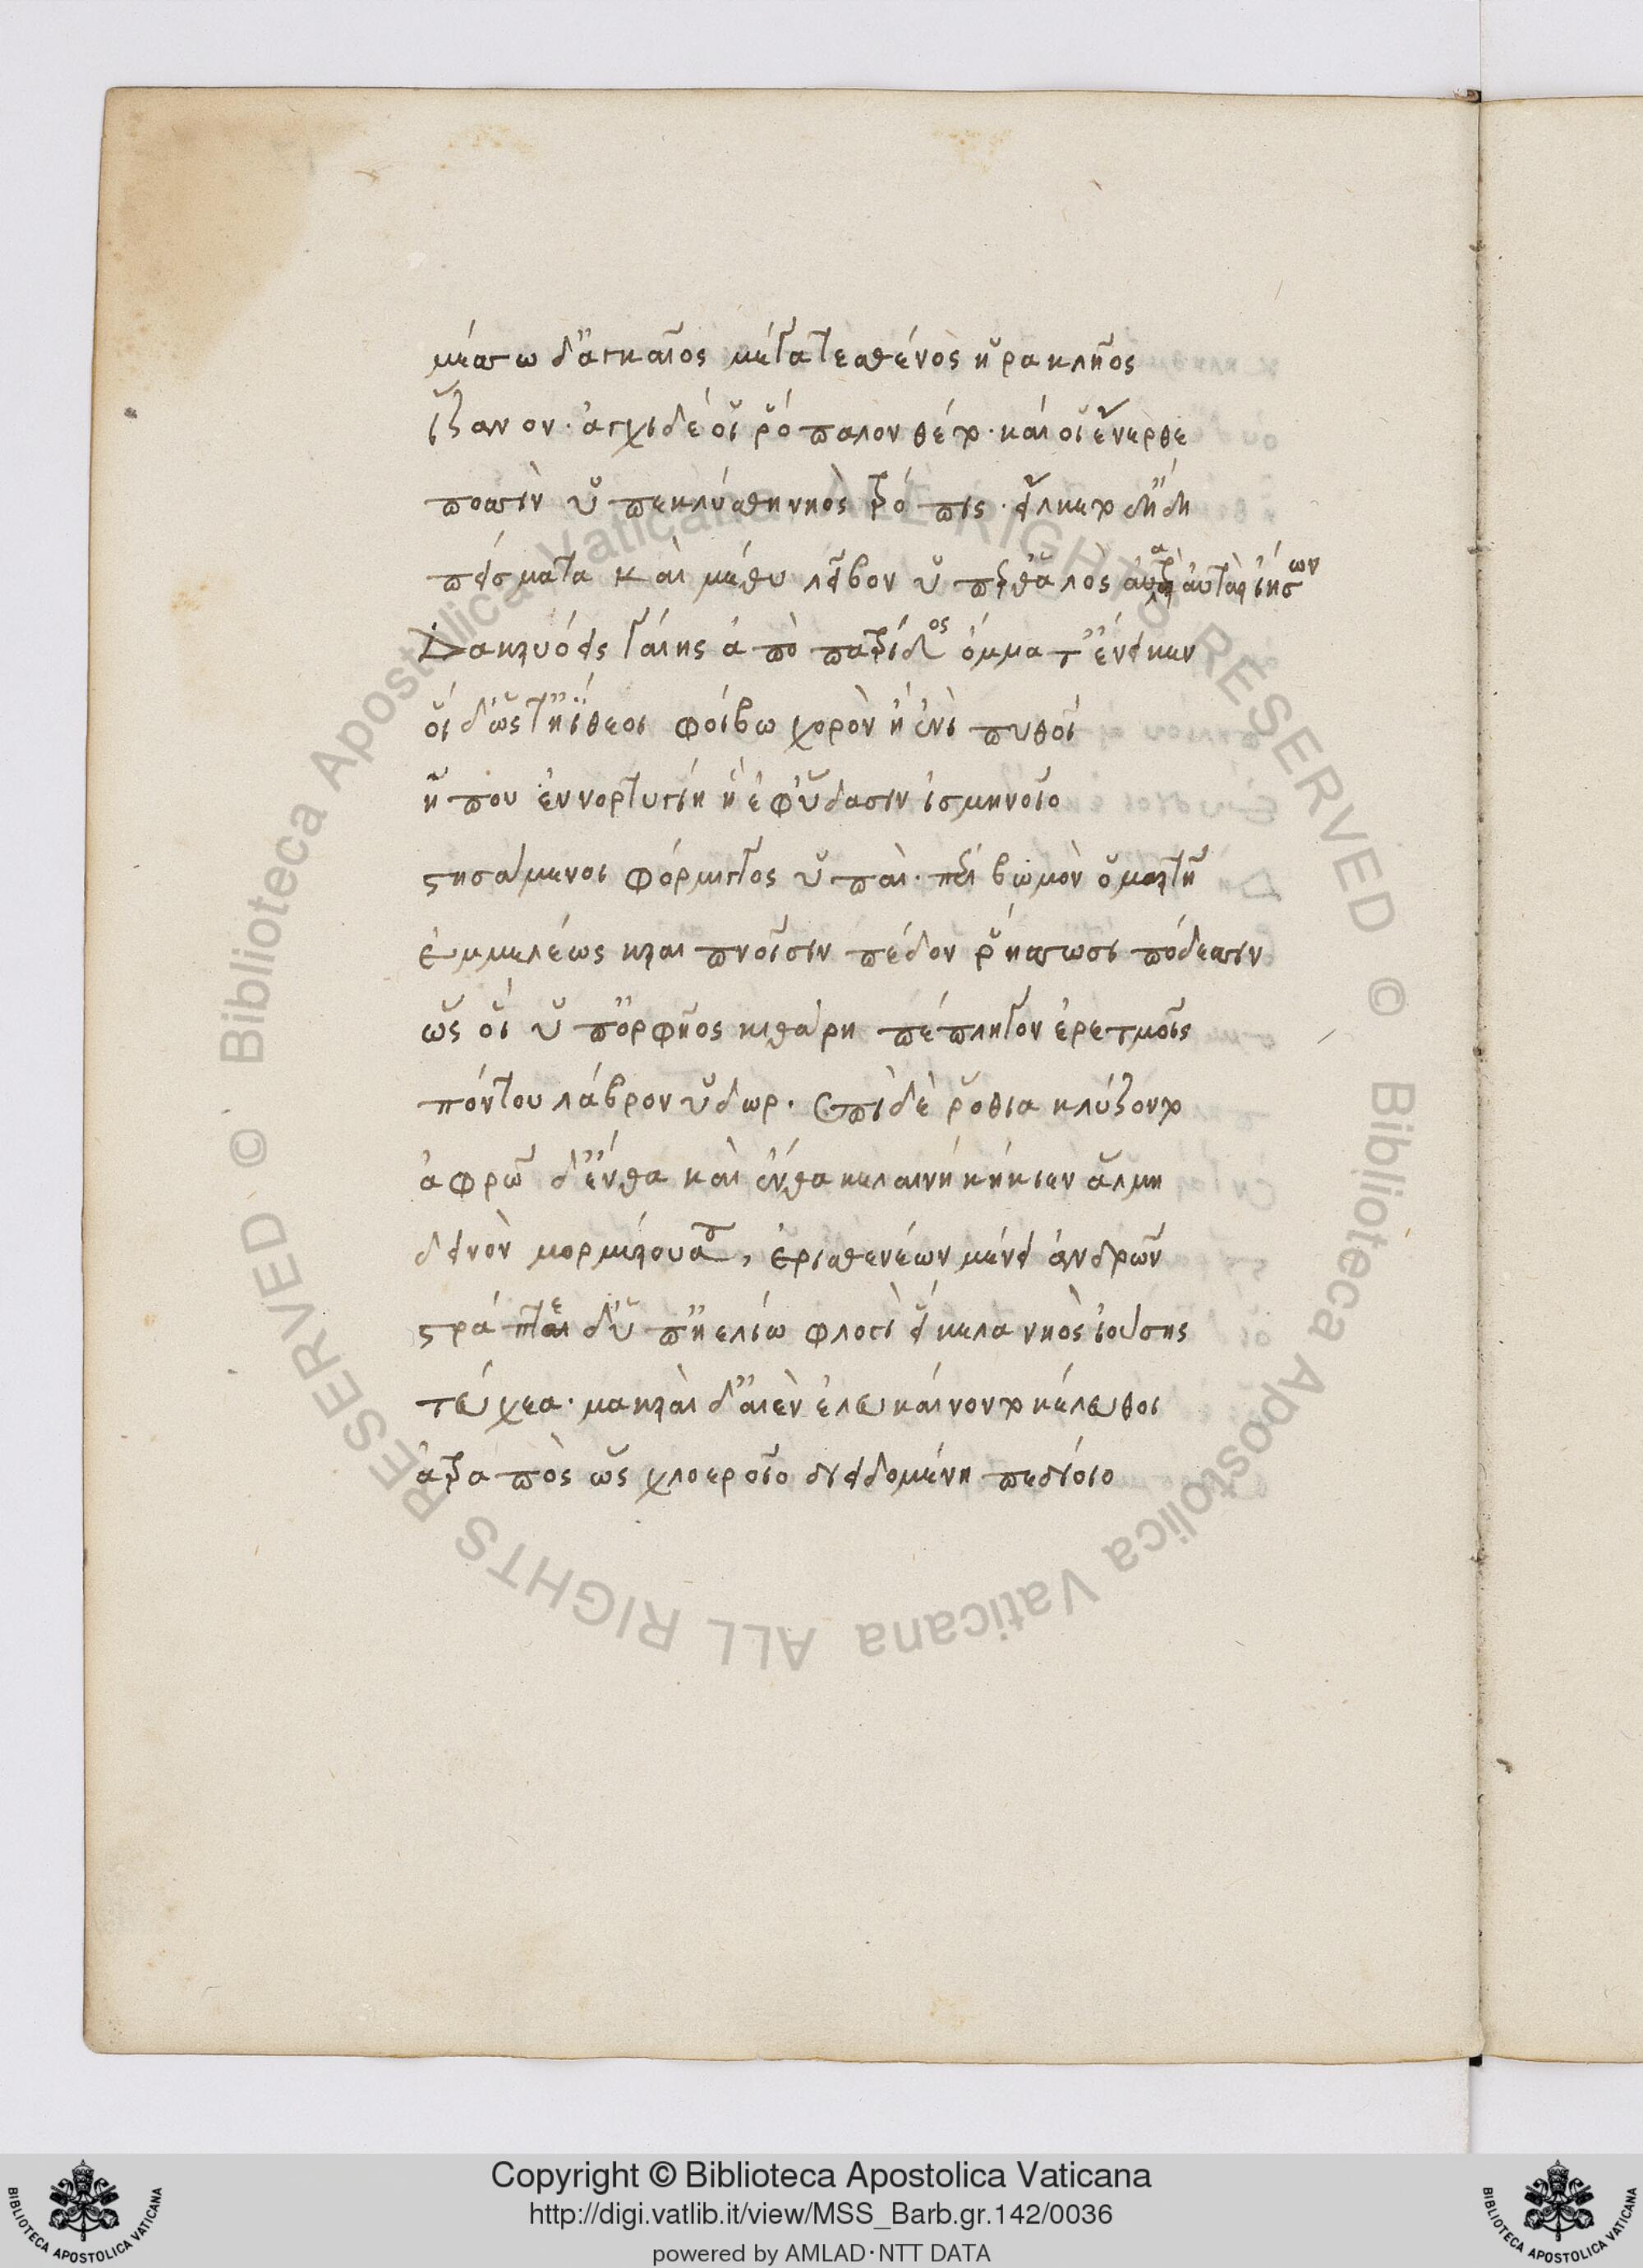 μέσσω δ' ἀγκαῖος μέγα τε σθένος ἡρακλῆος
ἵζανον· ἄγχι δέ οἱ ῥόπαλον θέτο· καί οἱ ἔνερθε
ποσσὶν ὑπεκλύσθη νηὸς τρόπις· εἵλκετο δ' ἤδη
πείσματα καὶ μέθυ λεῖβον ὕπερθ' ἁλός αὐτὰρ ἰήσων
Δακρυόεις γαίης ἀπὸ πατρίδος ὄμματ' ἔνεικεν
οἱ δ' ὥστ' ἠΐθεοι φοίβω χορὸν ἢ ἐνὶ πυθοῖ
ἤ που ἐν νορτυγίη ἢ ἐφ' ὕδασιν ἰσμηνοῖο
στησάμενοι φόρμιγγος ὑπαὶ· περὶ βωμὸν ὁμαρτῆ
ἐμμελέως κραιπνοῖσιν πέδον ῥήσσωσι πόδεσσιν
ὣς οἱ ὑπ' ὀρφῆος κιθάρη πέπληγον ἐρετμοῖς
πόντου λάβρον ὕδωρ. ἐπὶ δὲ ῥόθια κλύζοντο
ἀφρῶ δ' ἔνθα καὶ ἔνθα κελαινὴ κήκιεν ἅλμη
δεινὸν μορμύρουσα, ἐρισθενέων μένει ἀνδρῶν
στράπτε δ' ὑπ' ἠελίω φλογὶ εἴκελα νηὸς ἰούσης
τεύχεα· μακραὶ δ' αἰὲν ἐλευκαίνοντο κέλευθοι
ἀτραπὸς ὣς χλοεροῖο διειδομένη πεδίοιο
Copyright © Biblioteca Apostolica Vaticana
http://digi.vatlib.it/view/MSS_Barb.gr.142/0036
powered by AMLAD·NTT DATA